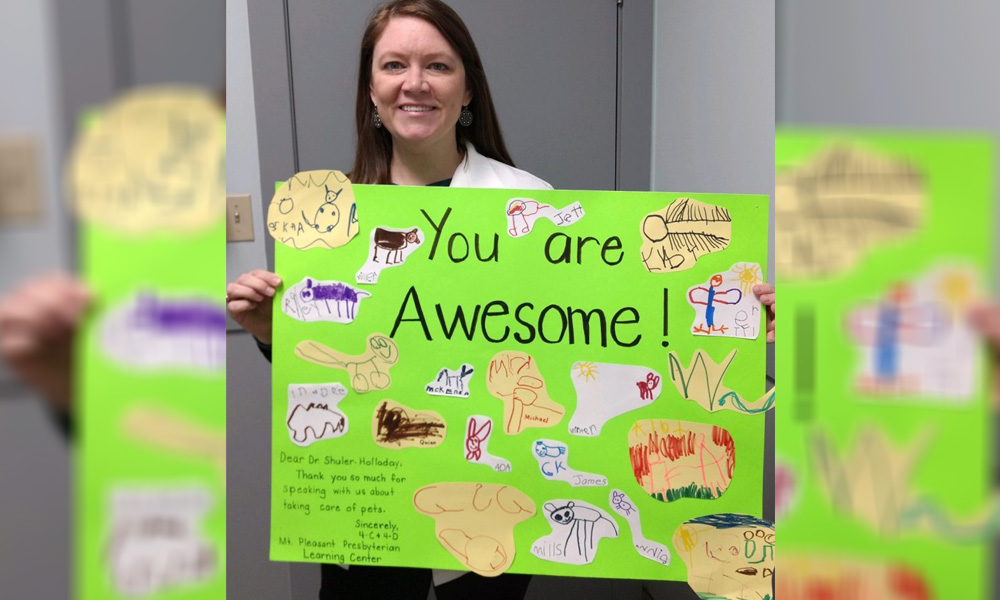 You are
Awesome!
Jett
Riley
McKenna
Michael
Quinn
ADA
CK
James
Mills
Dear Dr. Shuler-Holladay,
Thank you so much for
speaking with us about
taking care of pets.
Sincerely,
4-C & 4-D
Mt. Pleasant Presbyterian
Learning Center